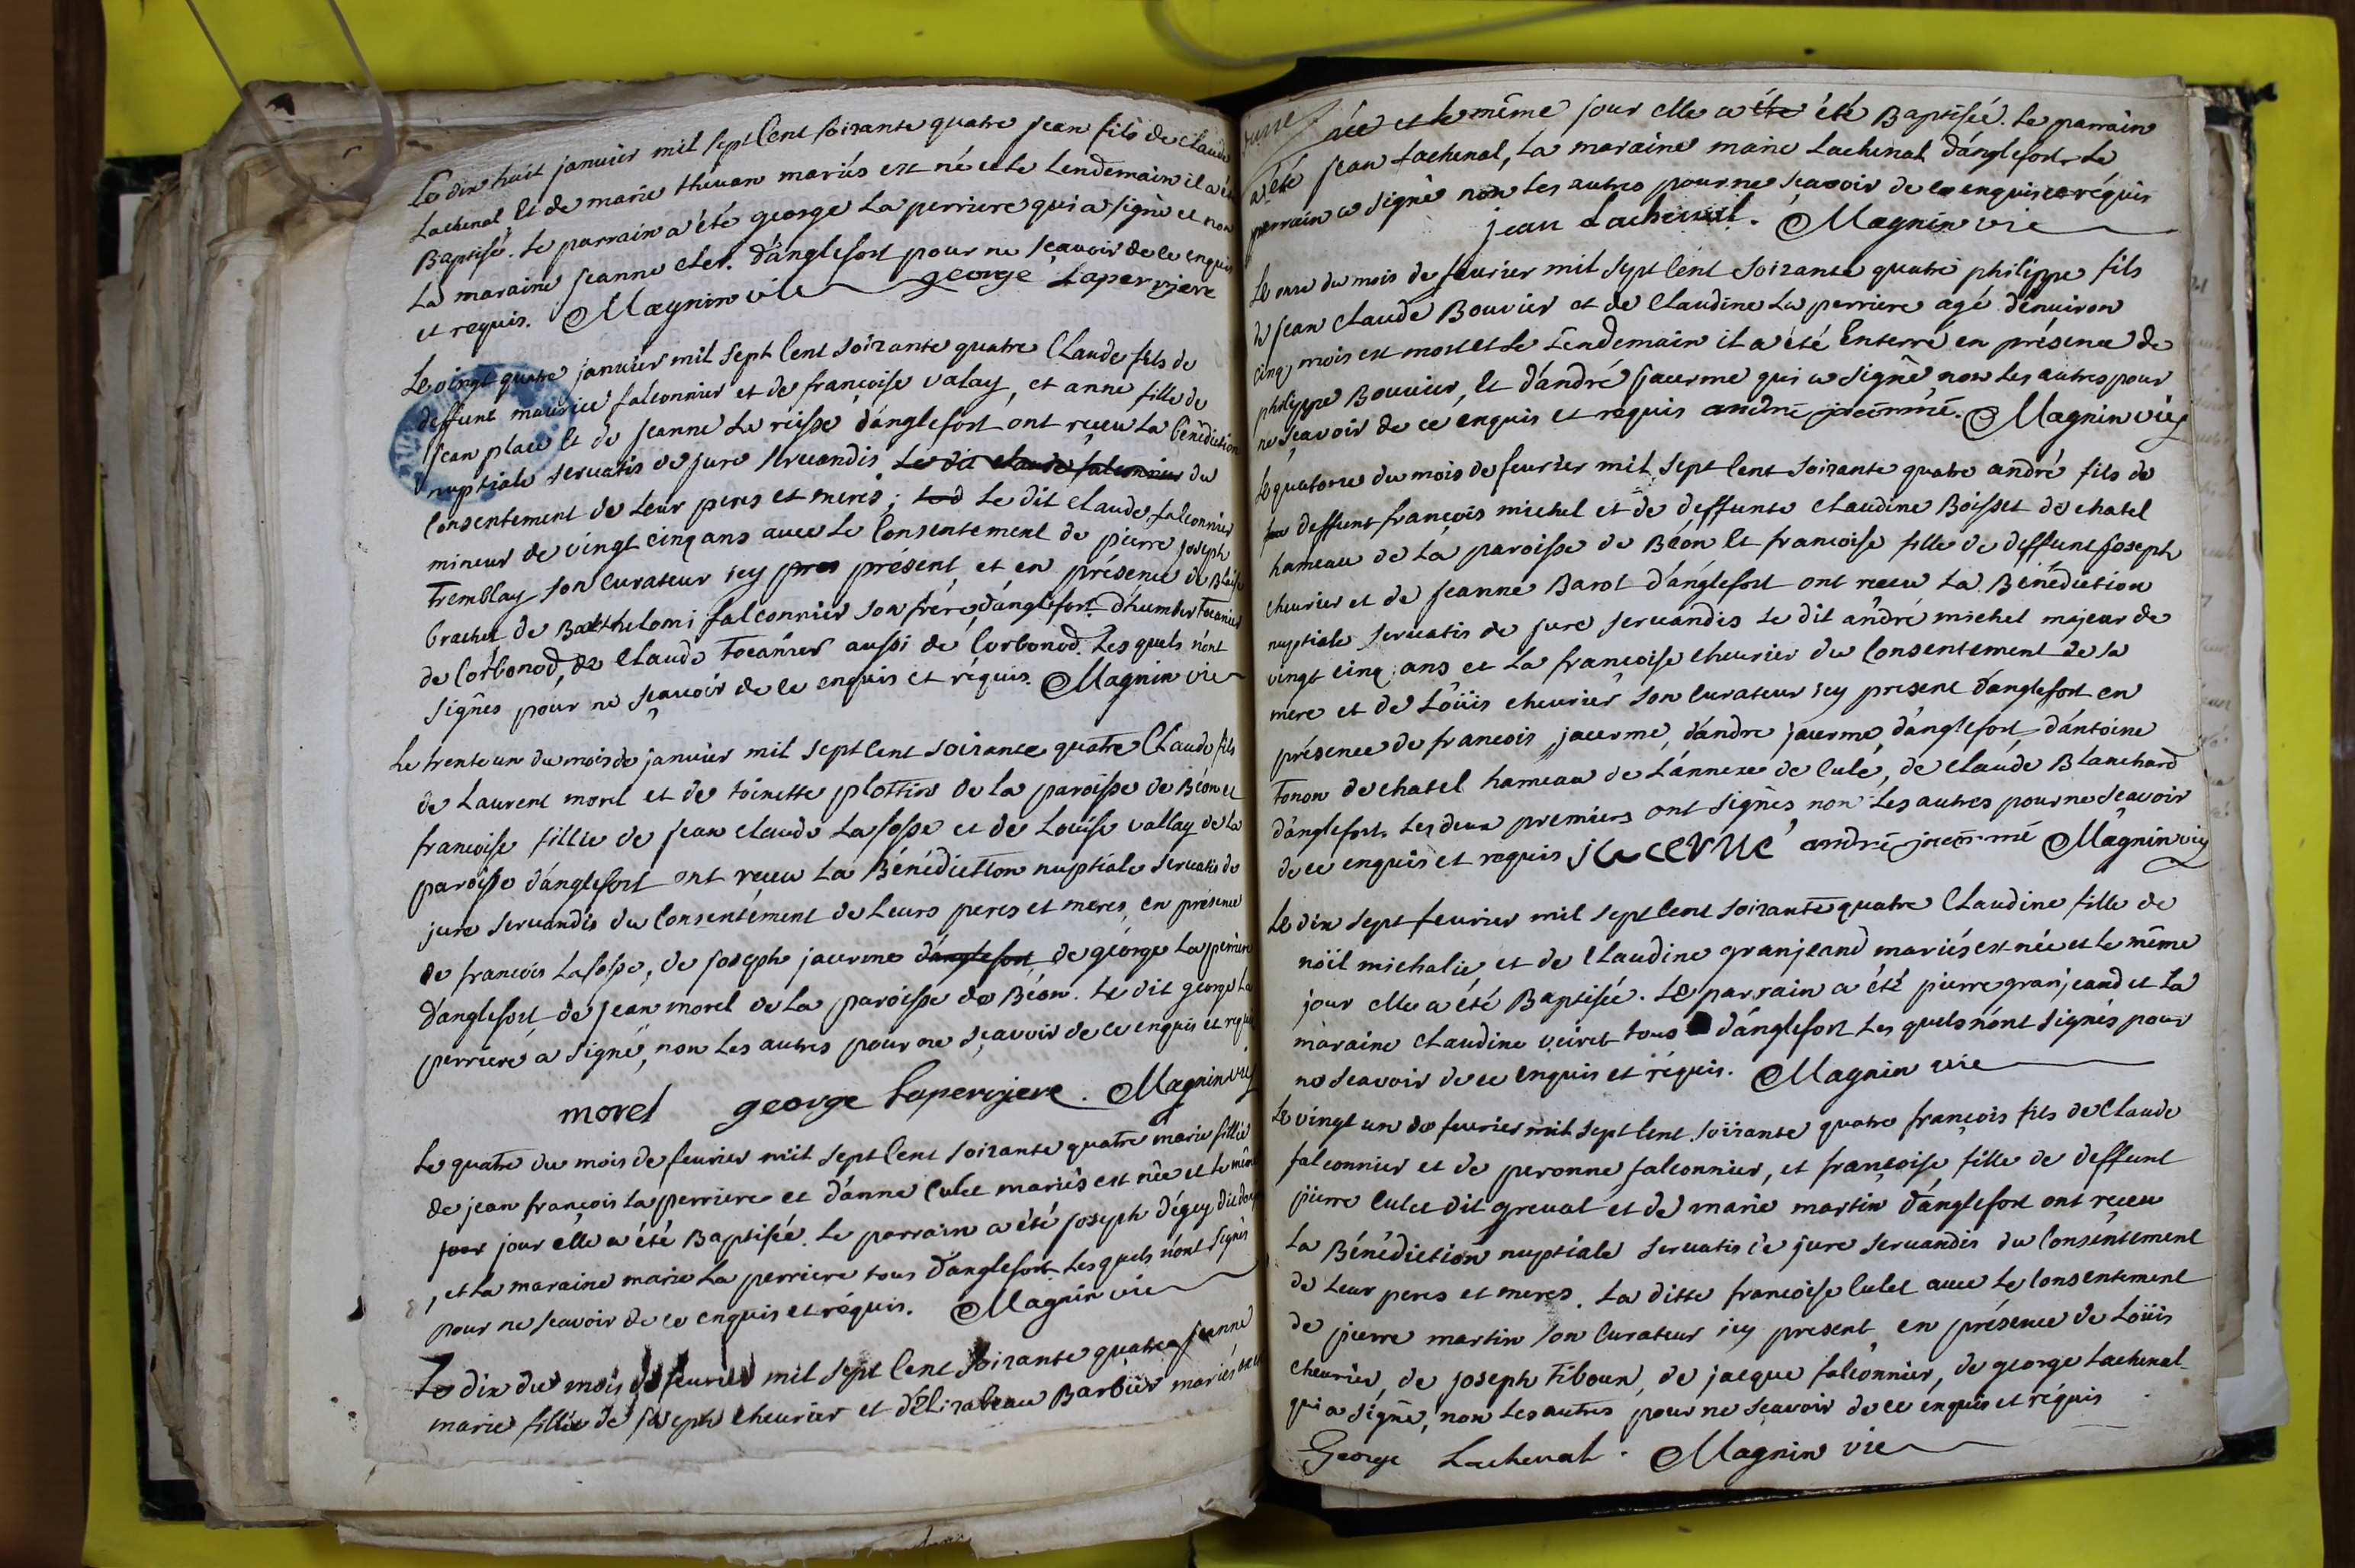 Le dix huit janvier mil sept Cent soixante quatre jean fils de claude
Lachenal Et de marie thevan mariés est né et le Lendemain il a été
Baptisé. Le parrain a été george La perriere qui a signé et non
La maraine jeanne clet. d'anglefort pour ne sçavoir de ce enquis
et requis. Magnin vic george Laperrjere
Le vingt quatre janvier mil sept Cent soixante quatre Claude fils de
deffunt maurice falconnier et de françoise valay, et anne fille de
jean place Et de jeanne Le reisse d'anglefort ont receu La bénédiction
nuptiale servatis de jure servandis Le dit claude falconnier du
Consentement de Leur peres et meres; Led Le dit claude falconnier
mineur de vingt cinq ans avec Le Consentement de pierre joseph
Tremblay son Curateur icy pres présent, et en présence de Blaise
brachet de Barthelomi falconnier son frère, d'anglefort d'humbert Tocanier
de Corbonod, de Claude Tocanier aussi de Corbonod. Les quels n'ont
signés pour ne sçavoir de ce enquis et réquis. Magnin vic
Le trente un du mois de janvier mil sept Cent soixante quatre Claude fils
de Laurent morel et de toinette plottin de la paroisse de Béon et
francoise fillie de jean claude La fosse et de Louise vallay de la
paroisse d'anglefort ont receu La Bénédiction nuptiale servatis de
jure servandis du Consentément de Leurs peres et meres, en présence
de francois Lafosse, de joseph jacerme d'anglefort de géorge La perriere
d'anglefort de jean morel de La paroisse de Béon. Le dit george La
perriere a signé, non Les autres pour ne sçavoir de ce enquis et requis
morel george Laperrjere. Magnin vic
Le quatre du mois de fevrier mil sept Cent soixante quatre marie fillie
de jean françois La perriere et d'anne Culet mariés est née et Le même
jour jour elle a été Baptisée. Le parrain a été joseph déguy dit
, et La maraine marie La perriere tous d'anglefort Les quels n'ont signés
pour ne scavoir de ce enquis et réquis. Magnin vic
Le dix du mois de fevrier mil sept Cent soixante quatre jeanne
marie fillie de joseph chevrier et d'Elizabeau Barbier mariés
née et Le même jour elle a été été Baptisée. Le parrain
a été jean Lachenal, La maraine marie Lachenal d'anglefort. Le
perrain a signé non Les autres pour ne sçavoir de ce enquis et réquis
jean Lachenal. Magnin vic
Le onze du mois de fevrier mil sept Cent soixante quatre philippe fils
de jean claude Bouvier et de Claudine La perriere agé d'environ
Cinq mois est mort et Le Lendemain il a été Enterré en présence de
philippe Bouvier, Et d'andré jacerme qui a signé, non Les autres pour
ne sçavoir de ce enquis et requis andre jacermé. Magnin vic
Le quatorze du mois de fevrier mil sept Cent soixante quatre andré fils de
feu deffunt françois michel et de deffunte Claudine Boisset de chatel
hameau de La paroisse de Béon Et francoise fille de deffunt joseph
chevrier et de jeanne Barot d'anglefort ont receu La Bénédiction
nuptiale servatis de jure servandis Le dit andré michel majeur de
vingt cinq ans et La françoise chevrier du Consentement de sa
mere et de Loüis chevrier son Curateur icy present d'anglefort en
présence de francois jacerme, d'andre jacerme, d'anglefort d'antoine
Tonon de chatel hameau de L'annexe de Culé, de claude Blanchard
d'anglefort. Les deux premiers ont signés non Les autres pour ne sçavoir
de ce enquis et requis jacerme andré jacermé Magnin vic
Le dix sept fevrier mil sept Cent soixante quatre Claudine fille de
nöil michalié et de Claudine granjeand mariés est née et Le même
jour elle a été Baptisée. Le parrain a été pierre granjeand et La
maraine claudine veiret tous d'anglefort Les quels n'ont signés pour
ne scavoir de ce enquis et réquis. Magnin vic
Le vingt un de fevrier mil sept Cent soixante quatre françois fils de Claude
falconnier et de peronne falconnier, et françoise fille de deffunt
pierre Culet dit greval et de marie martin d'anglefort ont receu
La Bénédiction nuptiale servatis de jure servandis du Consentement
de Leur peres et meres. La ditte francoise Culet avec Le Consentement
de pierre martin son Curateur icy present, en présence de Loüis
chevrier, de joseph Tiboun, de jacque falconnier, de george Lachenal
qui a signé, non Les autres pour ne scavoir de ce enquis et réquis
George Lachenal. Magnin vic